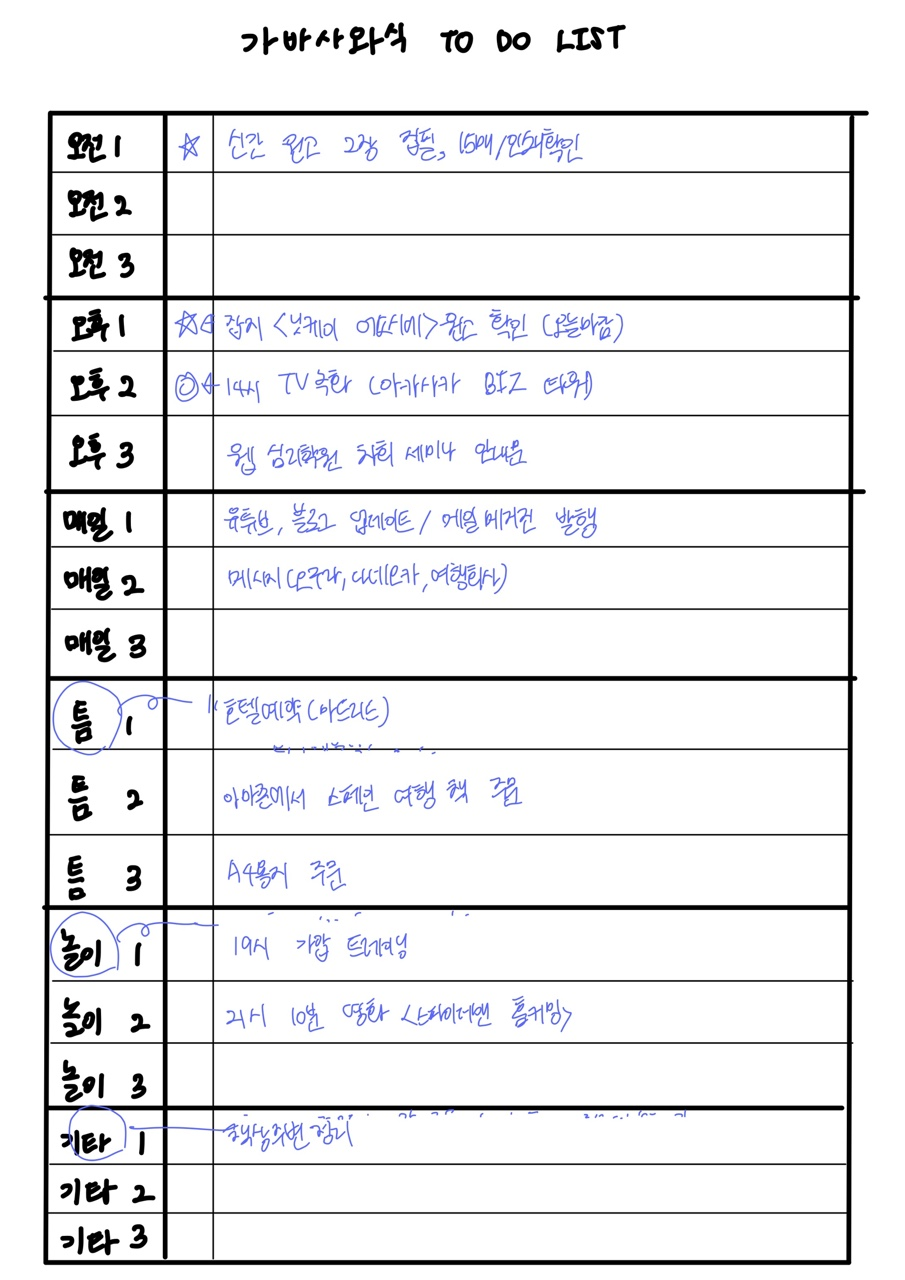 가바사와식 TO DO LIST
오전 1 ☆ 신간 원고 2장 집필, 15매/인쇄확인
오전 2
오전 3
오후 1 ☆ 잡지 <닛케이 > 원고 확인 (오늘마감)
오후 2 ◎ 14시 TV 녹화 (아카사카 BIZ 타워)
오후 3 웹 심리학원 차회 세미나 안내문
매일 1 유튜브, 블로그 업데이트 / 메일 매거진 발행
매일 2 메시지 (오쿠다, 다네오카, 여행회사)
매일 3
틈 1 호텔예약 (마드리드)
틈 2 아마존에서 스페인 여행 책 주문
틈 3 A4용지 주문
놀이 1 19시 가압 트레이닝
놀이 2 21시 10분 영화 <스파이더맨 홈커밍>
놀이 3
기타 1 책상주변 정리
기타 2
기타 3